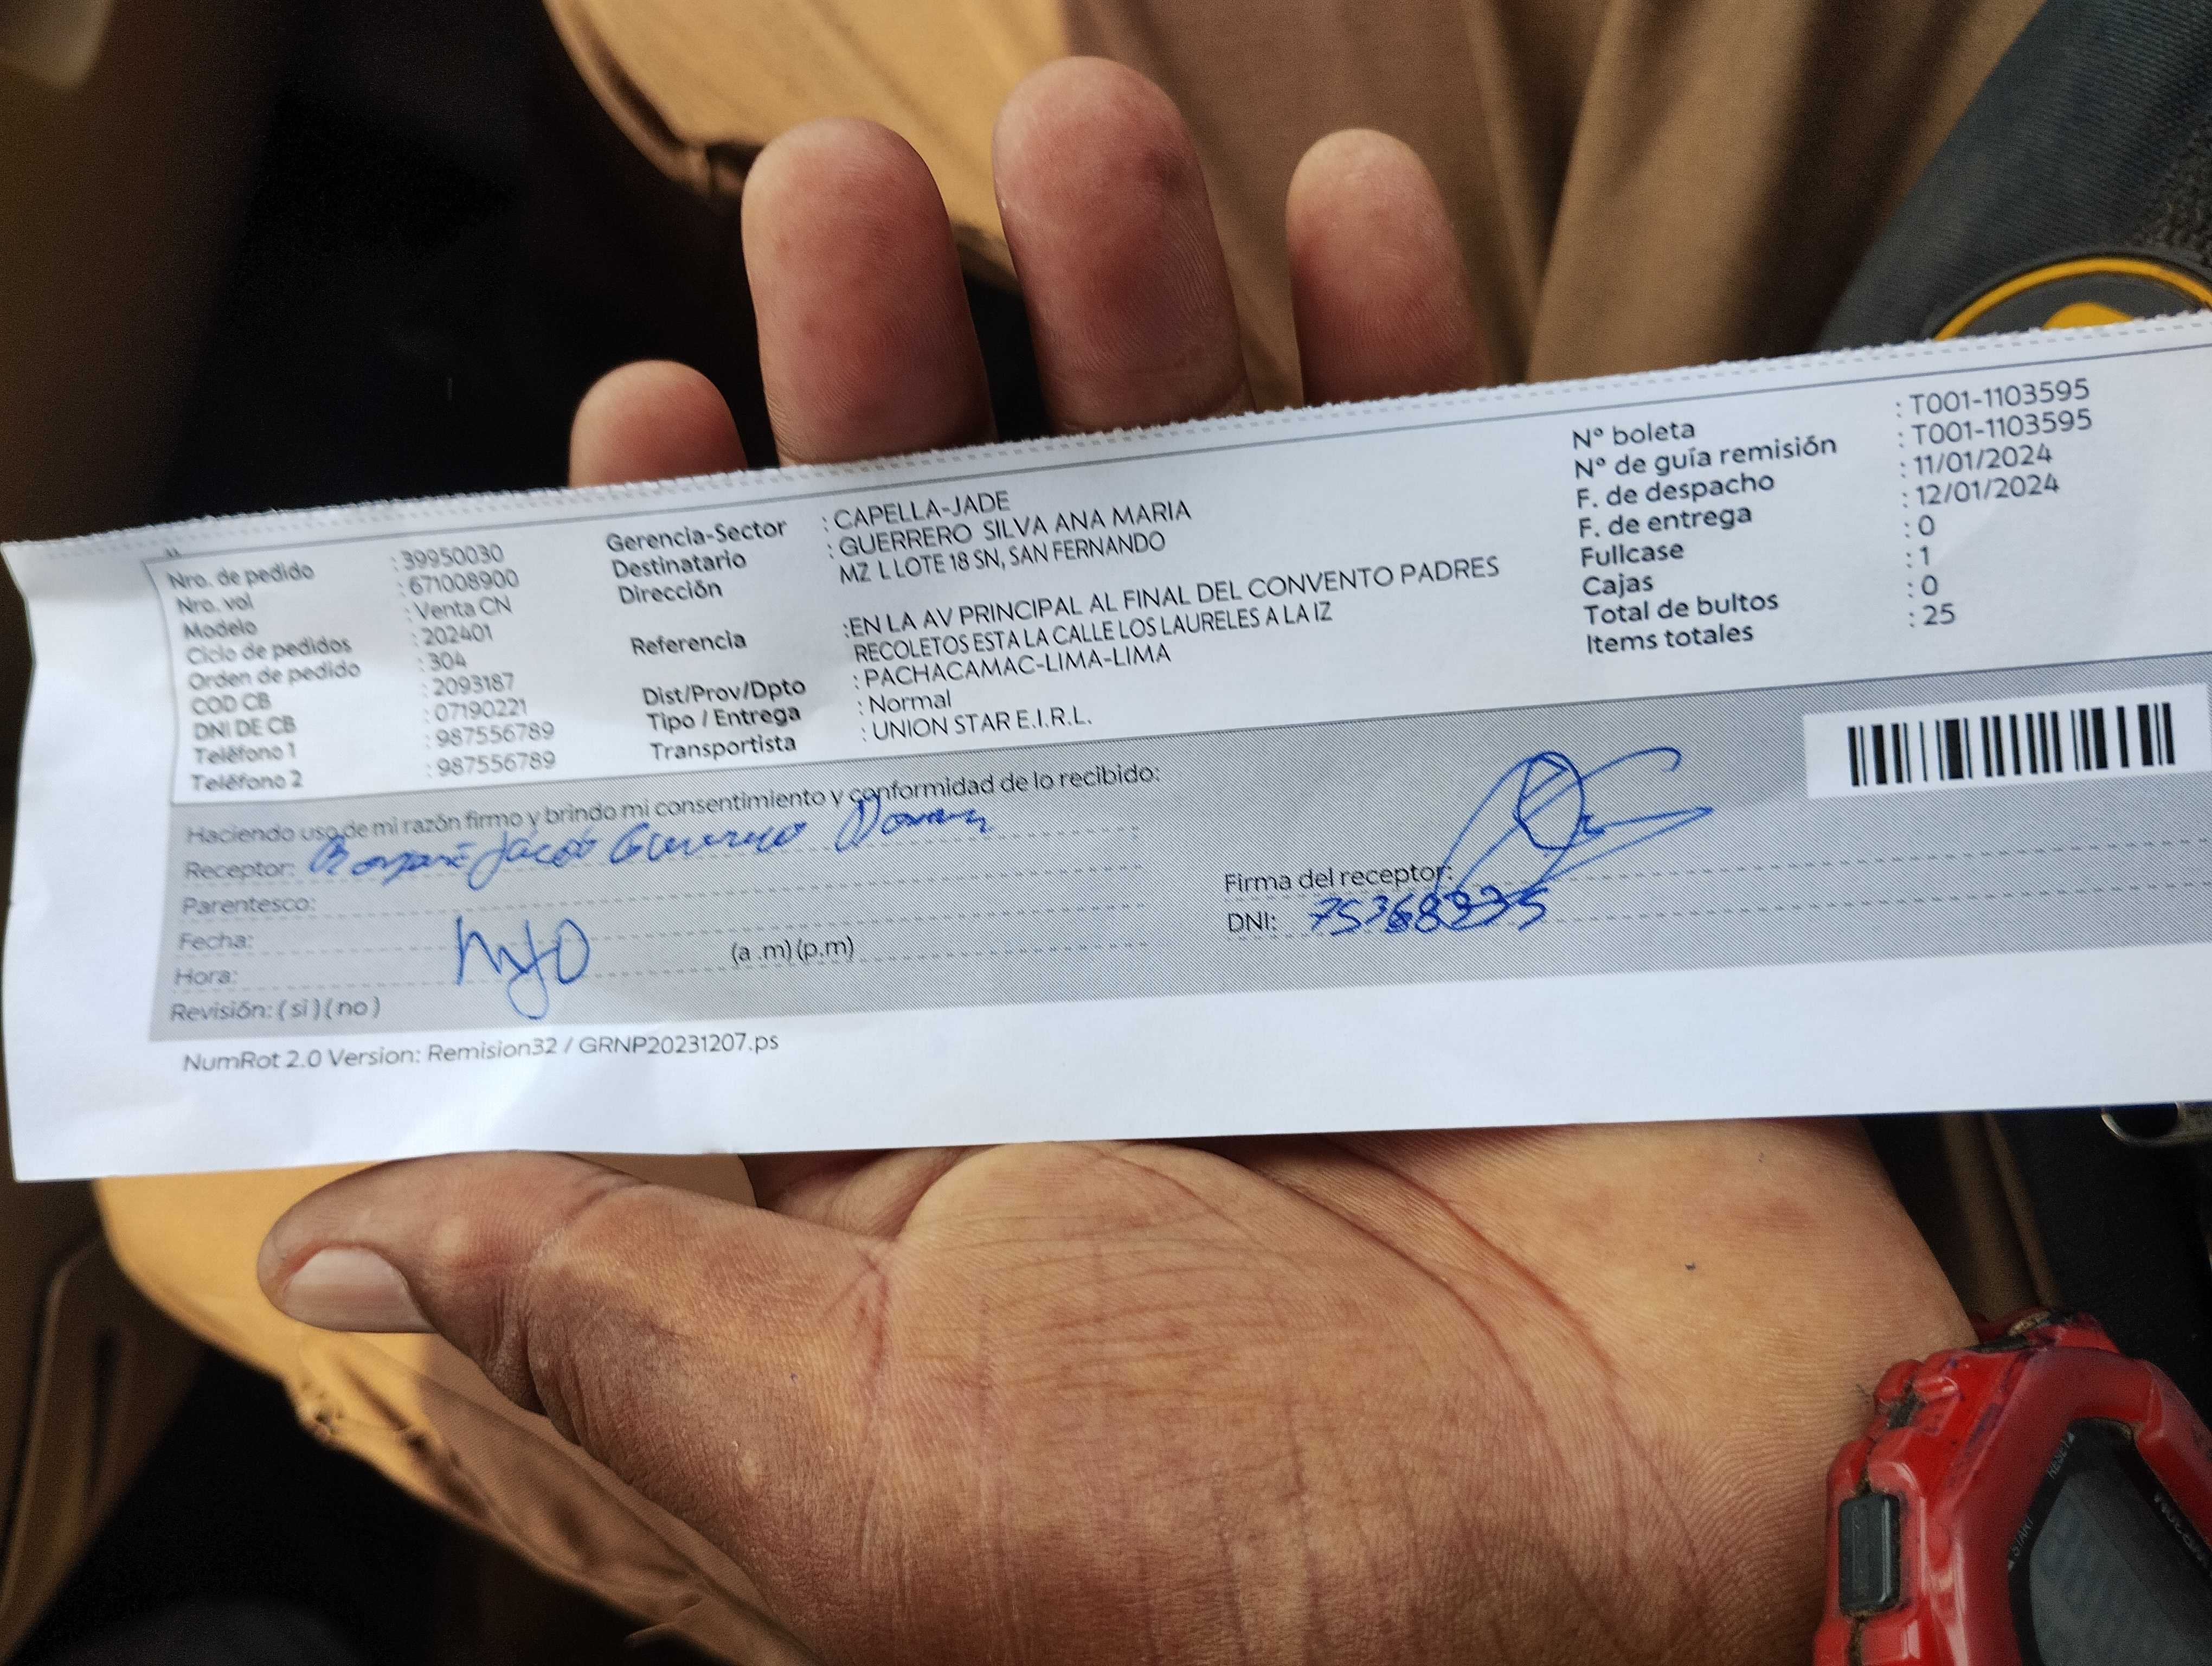 Nro. de pedido : 39950030
Nro. vol : 671008900
Modelo : Venta CN
Ciclo de pedidos : 202401
Orden de pedido : 304
COD CB : 2093187
DNI DE CB : 07190221
Teléfono 1 : 987556789
Teléfono 2 : 987556789
Gerencia-Sector : CAPELLA-JADE
Destinatario : GUERRERO SILVA ANA MARIA
Dirección MZ L LOTE 18 SN, SAN FERNANDO
Referencia :EN LA AV PRINCIPAL AL FINAL DEL CONVENTO PADRES
RECOLETOS ESTA LA CALLE LOS LAURELES A LA IZ
Dist/Prov/Dpto : PACHACAMAC-LIMA-LIMA
Tipo / Entrega : Normal
Transportista : UNION STAR E.I.R.L.
N° boleta : T001-1103595
N° de guía remisión : T001-1103595
F. de despacho : 11/01/2024
F. de entrega : 12/01/2024
Fullcase : 0
Cajas : 1
Total de bultos : 0
Items totales : 25
Haciendo uso de mi razón firmo y brindo mi consentimiento y conformidad de lo recibido:
Receptor: Jacob Guerrero
Parentesco:
Fecha:
Hora: (a .m) (p.m)
Revisión: ( si ) ( no )
Firma del receptor:
DNI:
NumRot 2.0 Version: Remision32 / GRNP20231207.ps
START
RESET